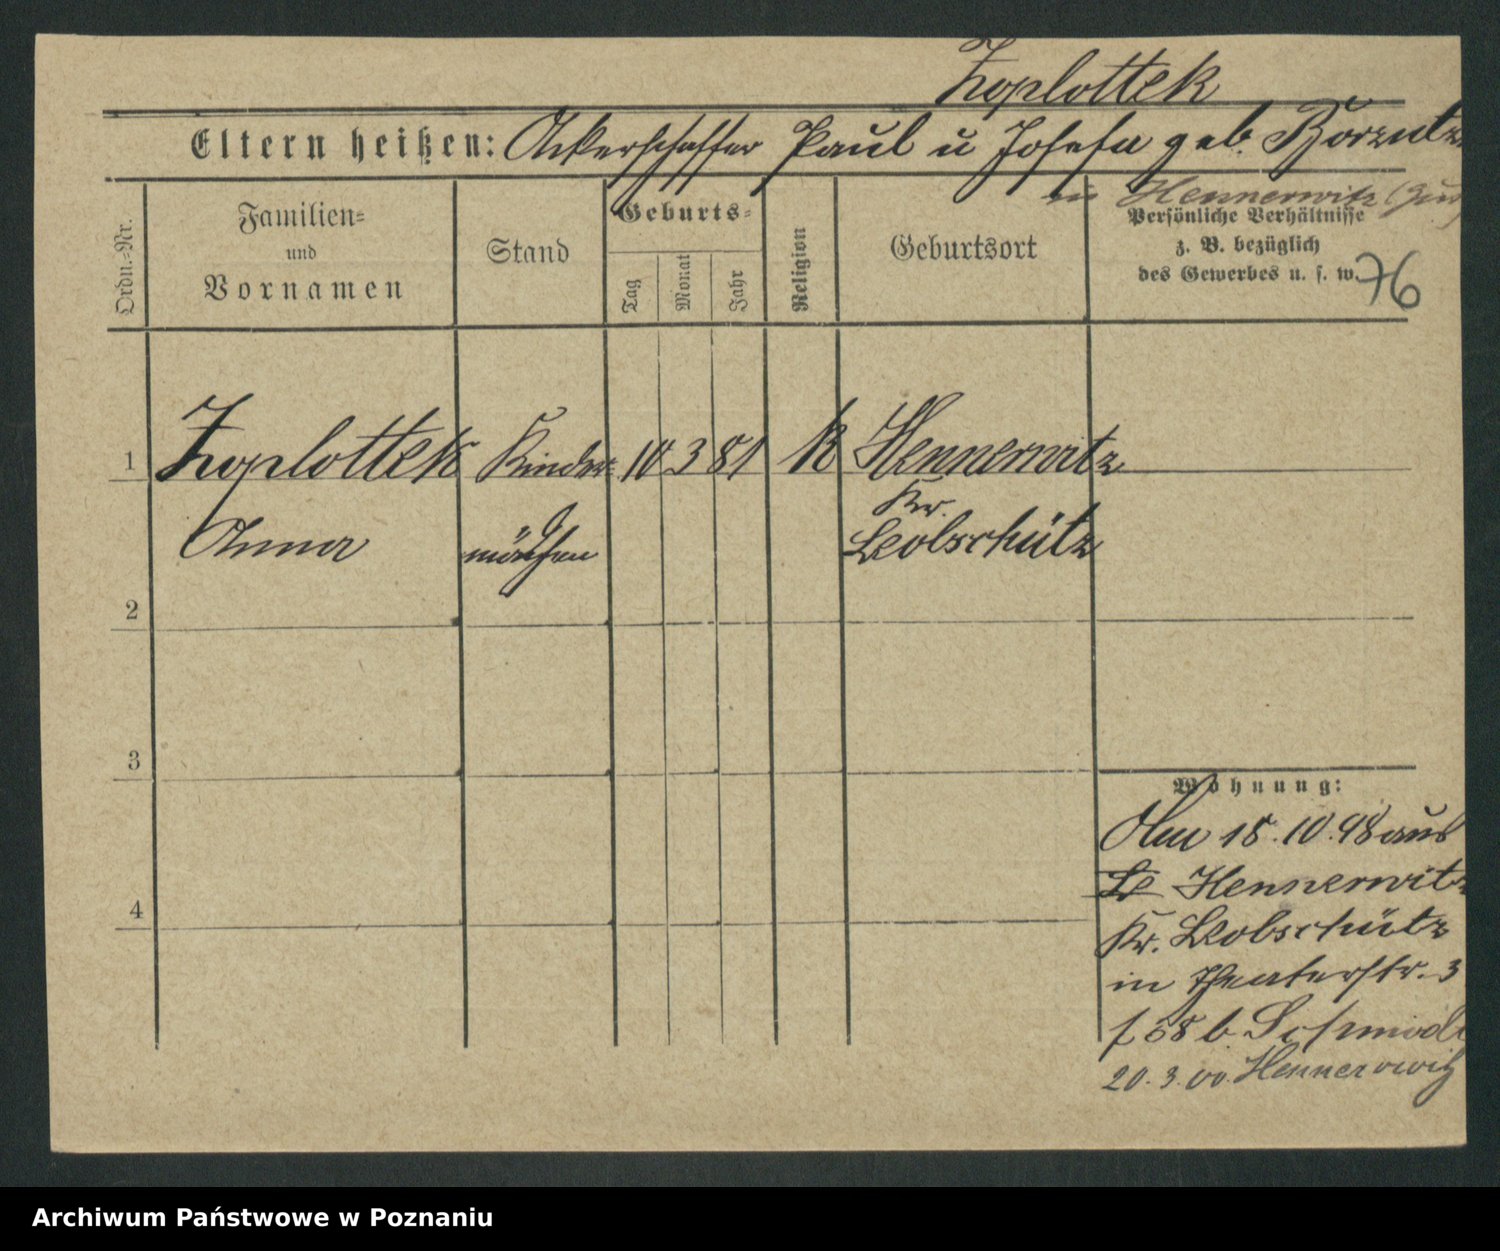 Zoplottek
Eltern heißen: Ackerschaffer Paul u Josefa geb. Borzutz
in Hennerwitz
Ordn.-Nr.
Familien-
und
Vornamen
Stand
Geburts-
Tag
Monat
Jahr
Religion
Geburtsort
Persönliche Verhältnisse
z. B. bezüglich
des Gewerbes u. s. w.
76
1 Zoplottek Kinder- 10 3 81 k Hennerwitz
Kr.
Anna mädchen Leobschütz
2
3
4
Wohnung:
Am 15.10.98 aus
Le Hennerwitz
Kr. Leobschütz
in Theaterstr. 3
f 58 b Schmidt
20.3.00 Hennerwitz
Archiwum Państwowe w Poznaniu